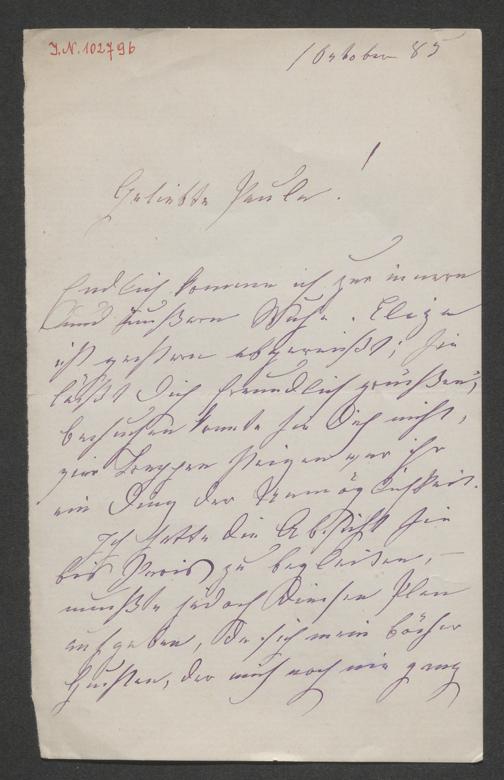 I.N. 102796
1 October 85
Geliebte Paula!
Endlich komme ich zur innern
und äußern Ruhe. Eliza
ist gestern abgereißt; sie
läßt Dich freundlich grüßen,
besuchen konnte sie Dich nicht,
vier Treppen steigen war ihr
ein Ding der Unmöglichkeit.
Ich hatte die Absicht sie
bis Paris zu begleiten, –
mußte jedoch diesen Plan
aufgeben, da sich mein böser
Husten, der mich noch nie ganz